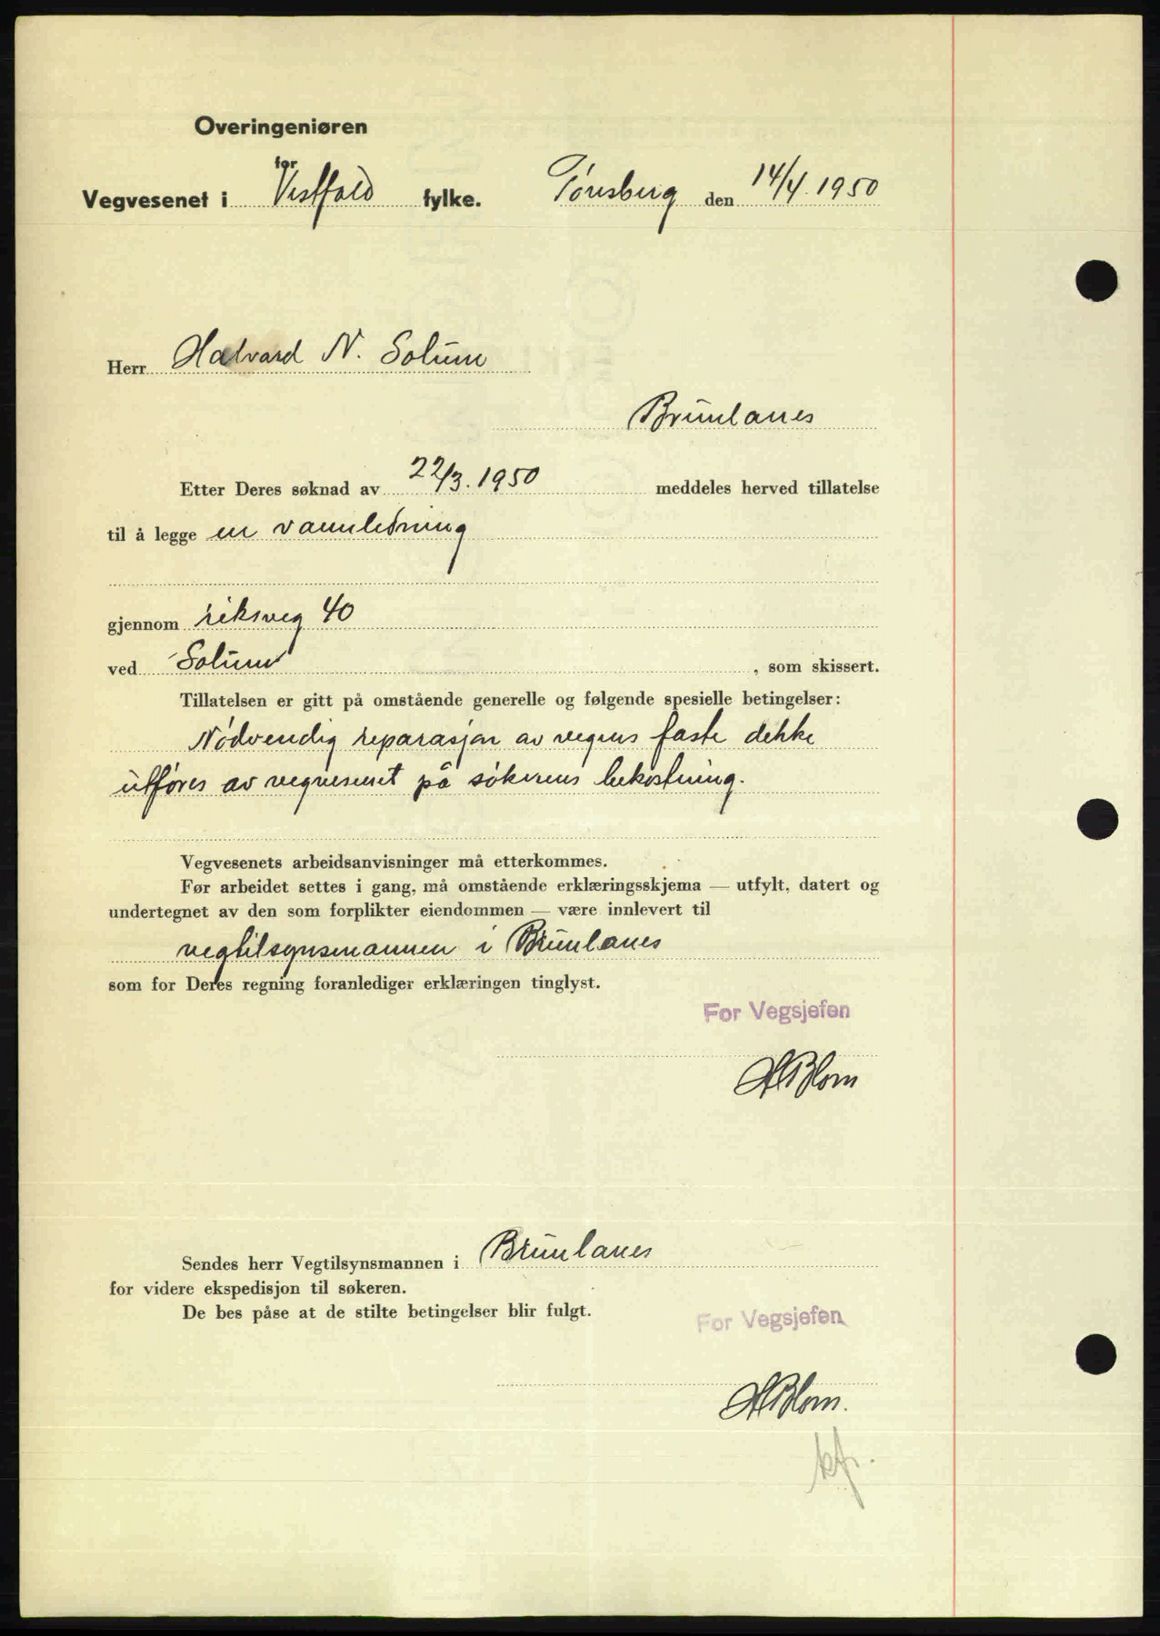 Overingeniøren
for
Vegvesenet i Vestfold fylke. Tønsberg den 14/4. 1950
Herr Halvard N. Solum
Brunlanes
Etter Deres søknad av 22/3. 1950 meddeles herved tillatelse
til å legge en vannledning
gjennom riksveg 40
ved Solum , som skissert.
Tillatelsen er gitt på omstående generelle og følgende spesielle betingelser:
Nödvendig reparasjon av vegens faste dekke
utføres av vegvesenet på søkerens bekostning.
Vegvesenets arbeidsanvisninger må etterkommes.
Før arbeidet settes i gang, må omstående erklæringsskjema — utfylt, datert og
undertegnet av den som forplikter eiendommen — være innlevert til
vegtilsynsmannen i Brunlanes
som for Deres regning foranlediger erklæringen tinglyst.
For Vegsjefen
HBlom
Sendes herr Vegtilsynsmannen i Brunlanes
for videre ekspedisjon til søkeren.
De bes påse at de stilte betingelser blir fulgt.
For Vegsjefen
HBlom.